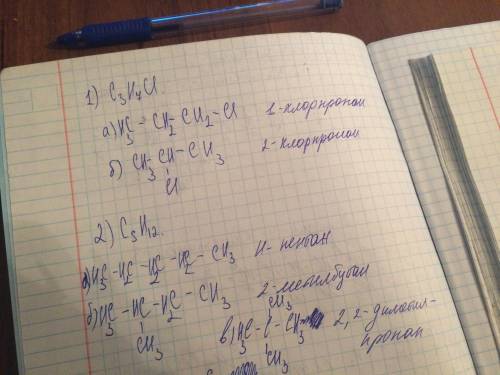 1) C3H7Cl
а) H3C - CH2 CH2-Cl 1-хлорпропан
б) CH3 CH - CH3 2-хлорпропан
Cl
2) C5H12.
а) H3C - H2C - H2C - H2C - CH3 н-пентан
б) H3C - HC - H2C - CH3 2-метилбутан
CH3
CH3
в) H3C - C - CH3 2,2-диметил-
пропан
CH3